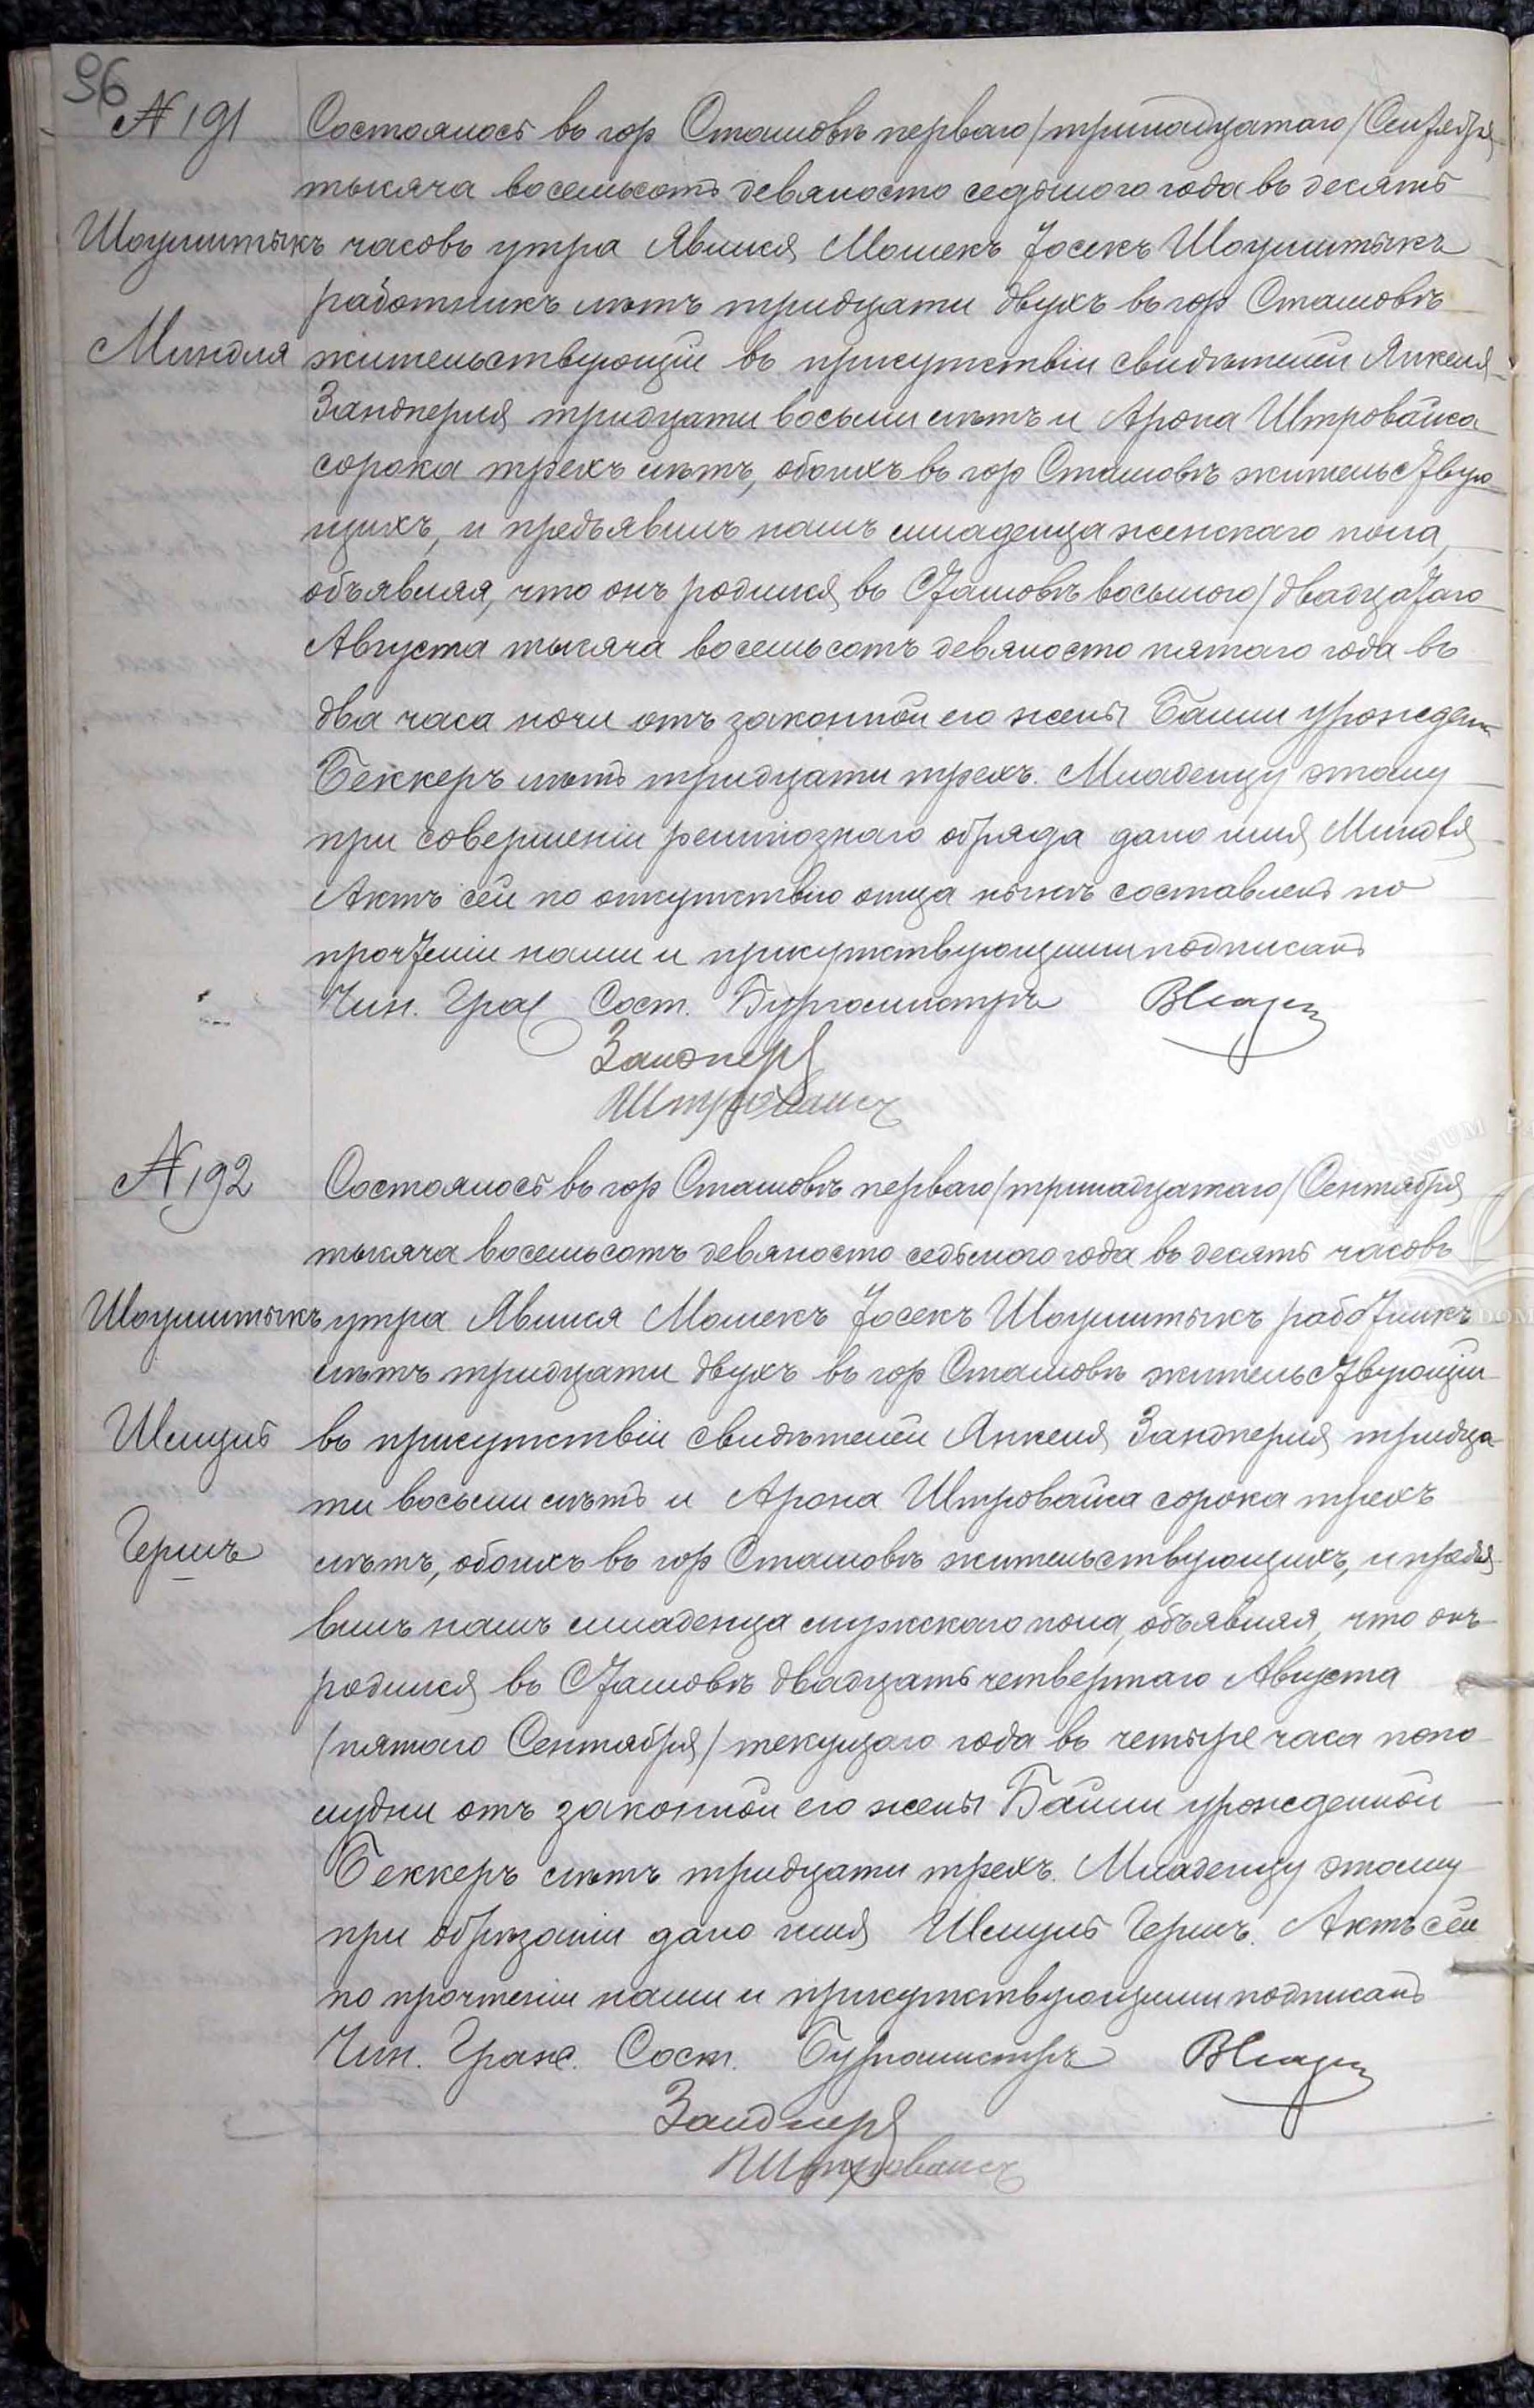 96
№ 191
Состоялось въ гор Сташовѣ перваго /тринадцатаго/ Сентября
тысяча восемьсотъ девяносто седьмого года въ десять
Шоумштыкъ часовъ утра Явился Мошекъ Іосекъ Шоумштыкъ
работникъ лѣтъ тридцати двухъ въ гор Сташовѣ
Миндля жительствующій въ присутствіи свидѣтелей Янкеля
Зандперля тридцати восьми лѣтъ и Арона Штровайса
сорока трехъ лѣтъ, обоихъ въ гор Сташовѣ жительствую
щихъ, и предъявилъ намъ младенца женскаго пола,
объявляя, что онъ родился въ Сташовѣ восьмого /двадцатаго
Августа тысяча восемьсотъ девяносто пятаго года въ
два часа ночи отъ законной его жены Байли урожден
Беккеръ лѣтъ тридцати трехъ. Младенцу этому
при совершеніи религіознаго обряда дано имя Миндля
Актъ сей по отсутствію отца нынѣ составленъ по
прочтеніи нами и присутствующими подписанъ
Чин. Граж Сост. Бургомистръ
Зандперл
Штровайсъ
№ 192
Состоялось въ гор Сташовѣ перваго /тринадцатаго/ Сентября
тысяча восемьсотъ девяносто седьмого года въ десять часовъ
Шоумштыкъ утра Явился Мошекъ Іосекъ Шоумштыкъ работникъ
лѣтъ тридцати двухъ въ гор Сташовѣ жительствующій
Шмуль въ присутствіи свидѣтелей Янкеля Зандперля тридца
ти восьми лѣтъ и Арона Штровайса сорока трехъ
Гершъ лѣтъ, обоихъ въ гор Сташовѣ жительствующихъ, и предъя
вилъ намъ младенца мужскаго пола, объявляя, что онъ
родился въ Сташовѣ двадцать четвертаго Августа
/пятаго Сентября/ текущаго года въ четыре часа попо
лудни отъ законной его жены Байли урожденной
Беккеръ лѣтъ тридцати трехъ. Младенцу этому
при обрѣзаніи дано имя Шмуль Гершъ. Актъ сей
по прочтеніи нами и присутствующими подписанъ
Чин. Граж. Сост. Бургомистръ
Зандперл
Штровайсъ